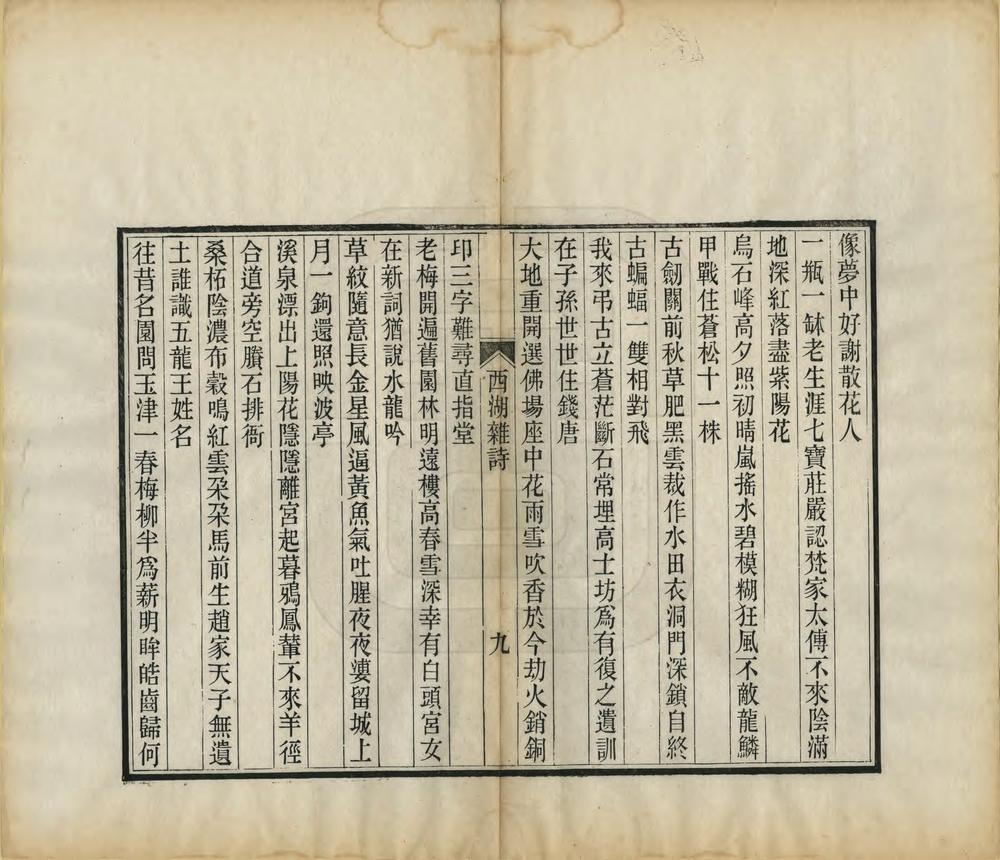 像夢中好謝散花人
一瓶一缽老生涯七寶莊嚴認梵家太傅不來陰滿
地深紅落盡紫陽花
烏石峰高夕照初晴嵐搖水碧模糊狂風不敵龍鱗
甲戰住蒼松十一株
古劒關前秋草肥黑雲裁作水田衣洞門深鎖自終
古蝙蝠一雙相對飛
我來弔古立蒼茫斷石常埋高士坊爲有復之遺訓
在子孫世世住錢唐
大地重開選佛場座中花雨雪吹香於今劫火銷銅
西湖雜詩
九
印三字難尋直指堂
老梅開遍舊園林明遠樓高春雪深幸有白頭宮女
在新詞猶說水龍吟
草紋隨意長金星風逼黃魚氣吐腥夜夜婁留城上
月一鉤還照映波亭
溪泉漂出上陽花隱隱離宮起暮鴉鳳輦不來羊徑
合道旁空賸石排衙
桑柘陰濃布穀鳴紅雲朶朶馬前生趙家天子無遺
土誰識五龍王姓名
往昔名園問玉津一春梅柳半爲薪明眸皓齒歸何